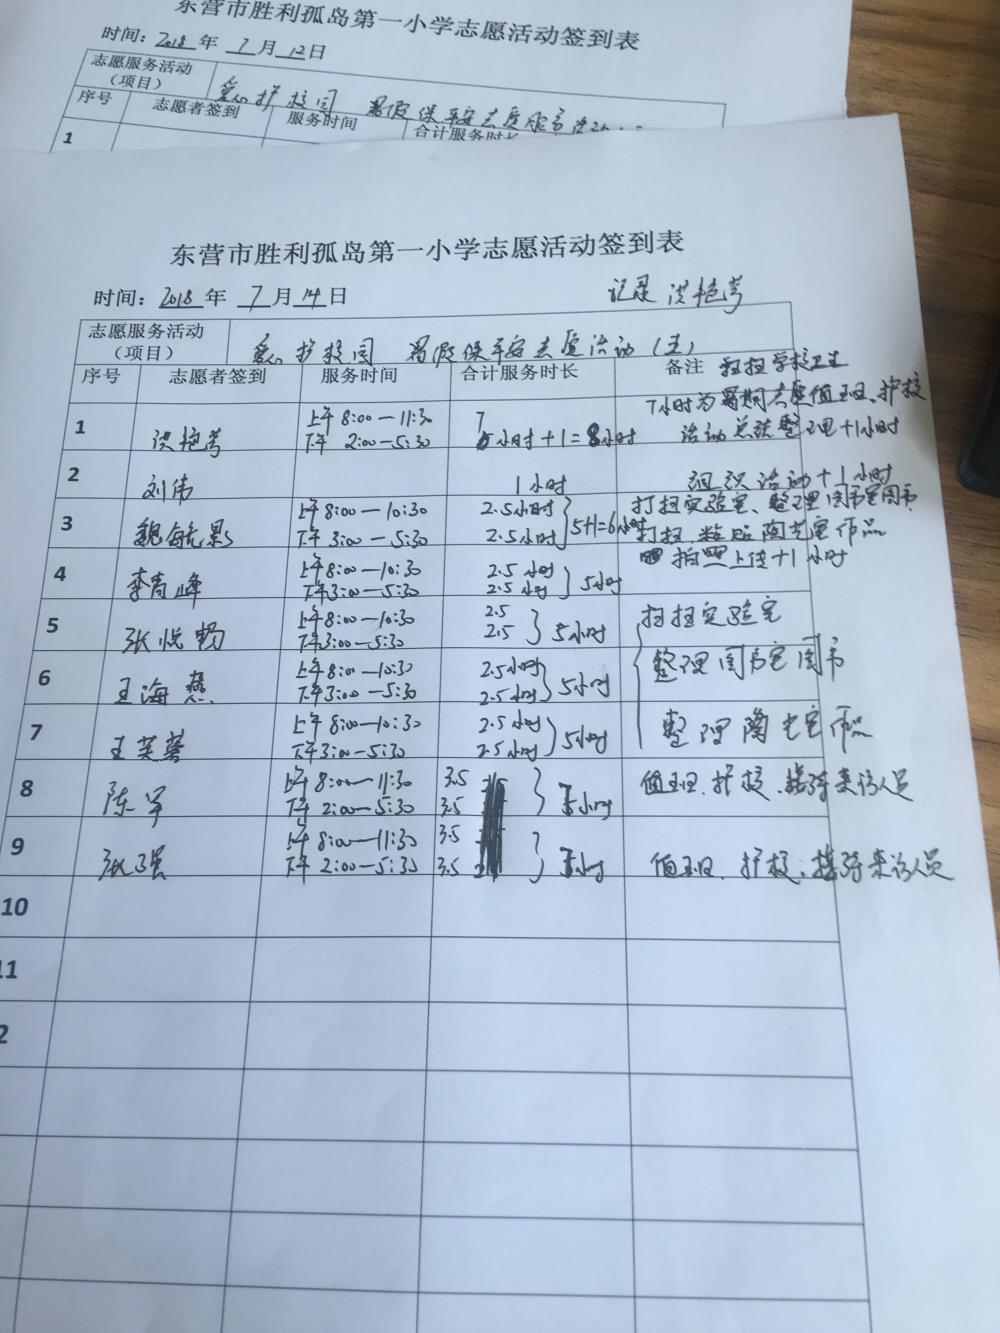 东营市胜利孤岛第一小学志愿活动签到表
时间：2018 年 7 月 12 日
志愿服务活动（项目） 爱心护校园 暑假保平安志愿服务活动
序号 志愿者签到 服务时间 合计服务时长
1
东营市胜利孤岛第一小学志愿活动签到表
时间：2018 年 7 月 14 日 记录 洪艳芳
志愿服务活动（项目） 爱心护校园 暑假保平安志愿活动（五）
序号 志愿者签到 服务时间 合计服务时长 备注 打扫学校卫生
7小时为暑期志愿值班、护校
1 洪艳芳 上午 8:00—11:30 7
下午 2:00—5:30 小时+1=8小时 活动总结整理+1小时
2 刘伟 1小时 组织活动+1小时
3 魏毓影 上午8:00—10:30 2.5小时 打扫实验室、整理图书室图书
下午3:00—5:30 2.5小时 5+1=6小时 打扫、粘贴陶艺室作品
拍照上传+1小时
4 李青峰 上午8:00—10:30 2.5小时
下午3:00—5:30 2.5小时 5小时
5 张悦鸭 上午8:00—10:30 2.5 打扫实验室
下午3:00—5:30 2.5 5小时
6 王海燕 上午8:00—10:30 2.5小时 整理图书室图书
下午3:00—5:30 2.5小时 5小时
7 王芙蓉 上午8:00—10:30 2.5小时 整理陶艺室作品
下午3:00—5:30 2.5小时 5小时
8 陈军 上午8:00—11:30 3.5 值班、护校、接待来访人员
下午2:00—5:30 3.5 7小时
9 张强 上午8:00—11:30 3.5
下午2:00—5:30 3.5 7小时 值班、护校、接待来访人员
10
11
2